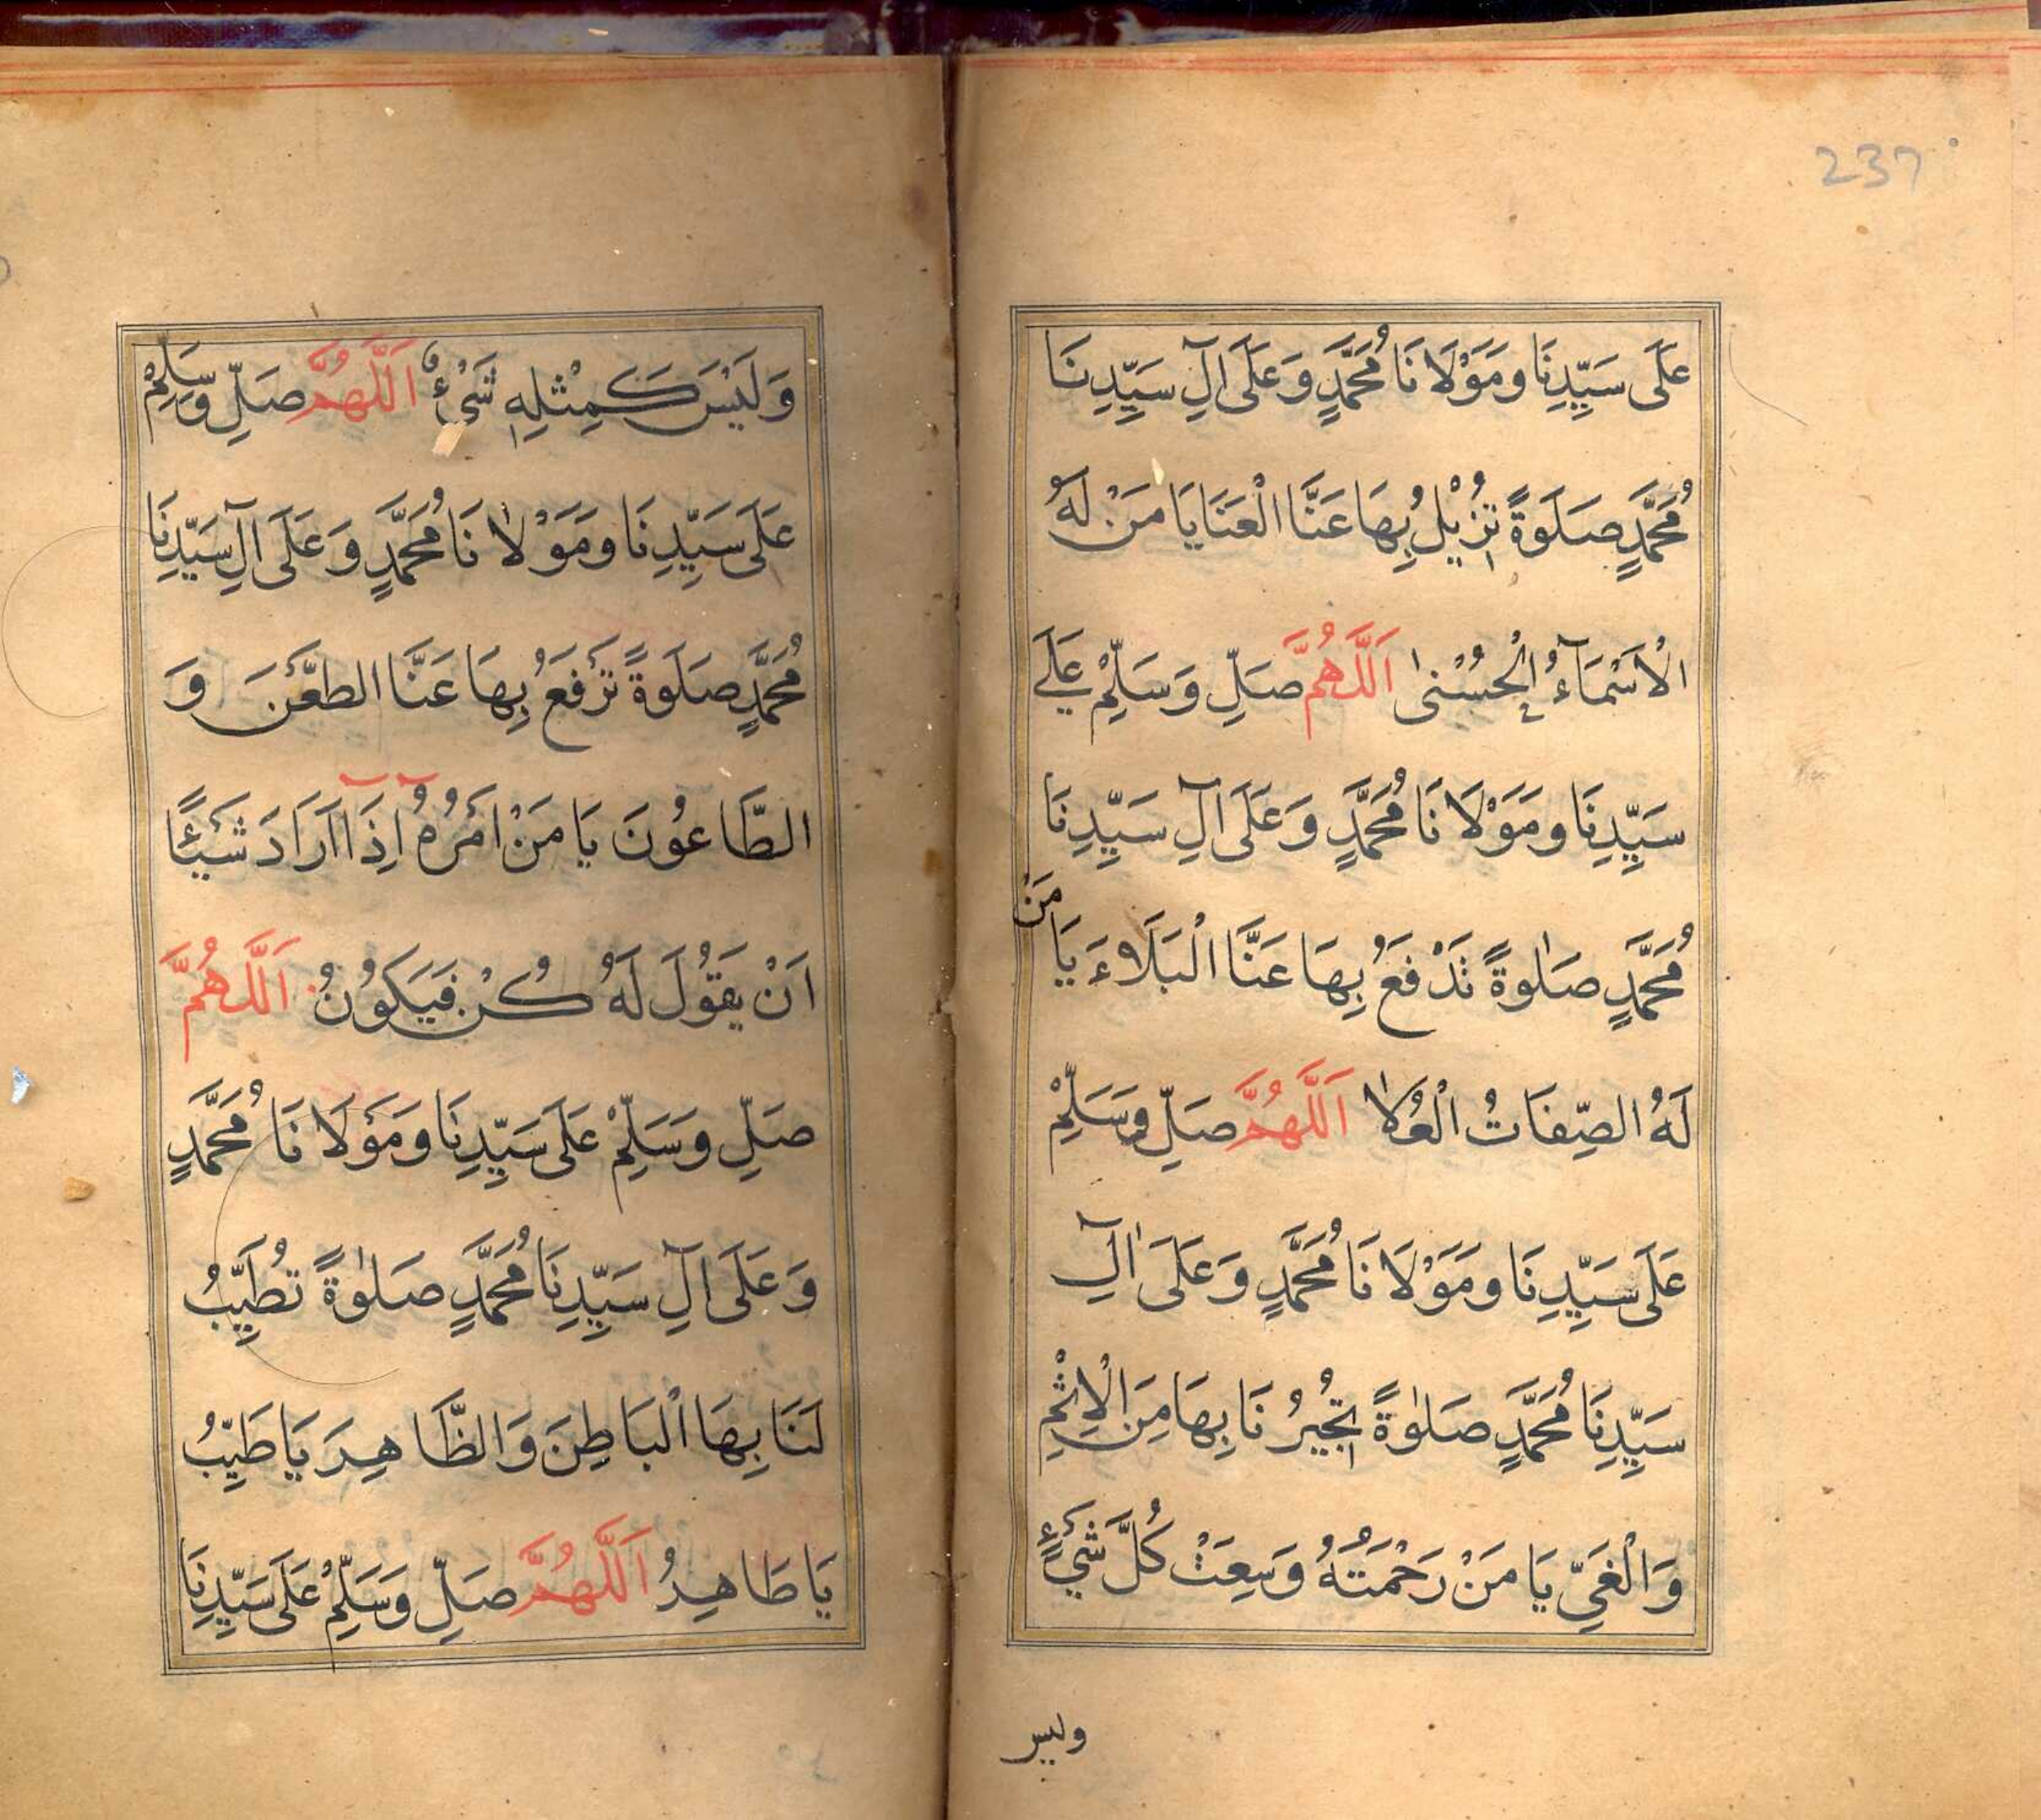 237
عَلَى سَيِّدِنَا وَمَوْلَانَا مُحَمَّدٍ وَعَلَى آلِ سَيِّدِنَا
مُحَمَّدٍ صَلَوةً تُزِيْلُ بِهَا عَنَّا الْعَنَا يَا مَنْ لَهُ
الْاَسْمَآءُ الْحُسْنىٰ اَللَّهُمَّ صَلِّ وَسَلِّمْ عَلَے
سَيِّدِنَا وَمَوْلَانَا مُحَمَّدٍ وَعَلَى آلِ سَيِّدِنَا
مُحَمَّدٍ صَلٰوةً تَدْفَعُ بِهَا عَنَّا الْبَلَاءَ يَا مَنْ
لَهُ الصِّفَاتُ الْعُلَا اَللَّهُمَّ صَلِّ وَسَلِّمْ
عَلَى سَيِّدِنَا وَمَوْلَانَا مُحَمَّدٍ وَعَلَى اٰلِ
سَيِّدِنَا مُحَمَّدٍ صَلٰوةً تُجِيْرُنَا بِهَا مِنَ الْاِثْمِ
وَالْغَيِّ يَا مَنْ رَحْمَتُهُ وَسِعَتْ كُلَّ شَيْءٍ
وليس
وَلَيْسَ كَمِثْلِهِ شَيْءٌ اَللَّهُمَّ صَلِّ وَسَلِّمْ
عَلَى سَيِّدِنَا وَمَوْلَانَا مُحَمَّدٍ وَعَلَى آلِ سَيِّدِنَا
مُحَمَّدٍ صَلَوةً تَرْفَعُ بِهَا عَنَّا الطَّعْنَ وَ
الطَّاعُونَ يَا مَنْ اَمْرُهُ اِذَآ اَرَادَ شَيْئًا
اَنْ يَقُوْلَ لَهُ كُنْ فَيَكُوْنُ اَللَّهُمَّ
صَلِّ وَسَلِّمْ عَلَى سَيِّدِنَا وَمَوْلَانَا مُحَمَّدٍ
وَعَلَى آلِ سَيِّدِنَا مُحَمَّدٍ صَلٰوةً تُطَيِّبُ
لَنَا بِهَا الْبَاطِنَ وَالظَّاهِرَ يَا طَيِّبُ
يَا طَاهِرُ اَللَّهُمَّ صَلِّ وَسَلِّمْ عَلَى سَيِّدِنَا